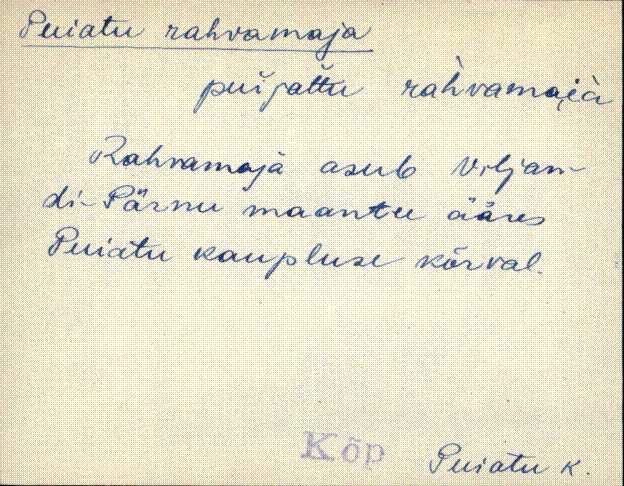 Puiatu rahvamaja
puĭjattu ràhvamaià
Rahvamaja asub Viljan-
di-Pärnu maantee ääres
Puiatu kaupluse kõrval.
Kõp
Puiatu k.